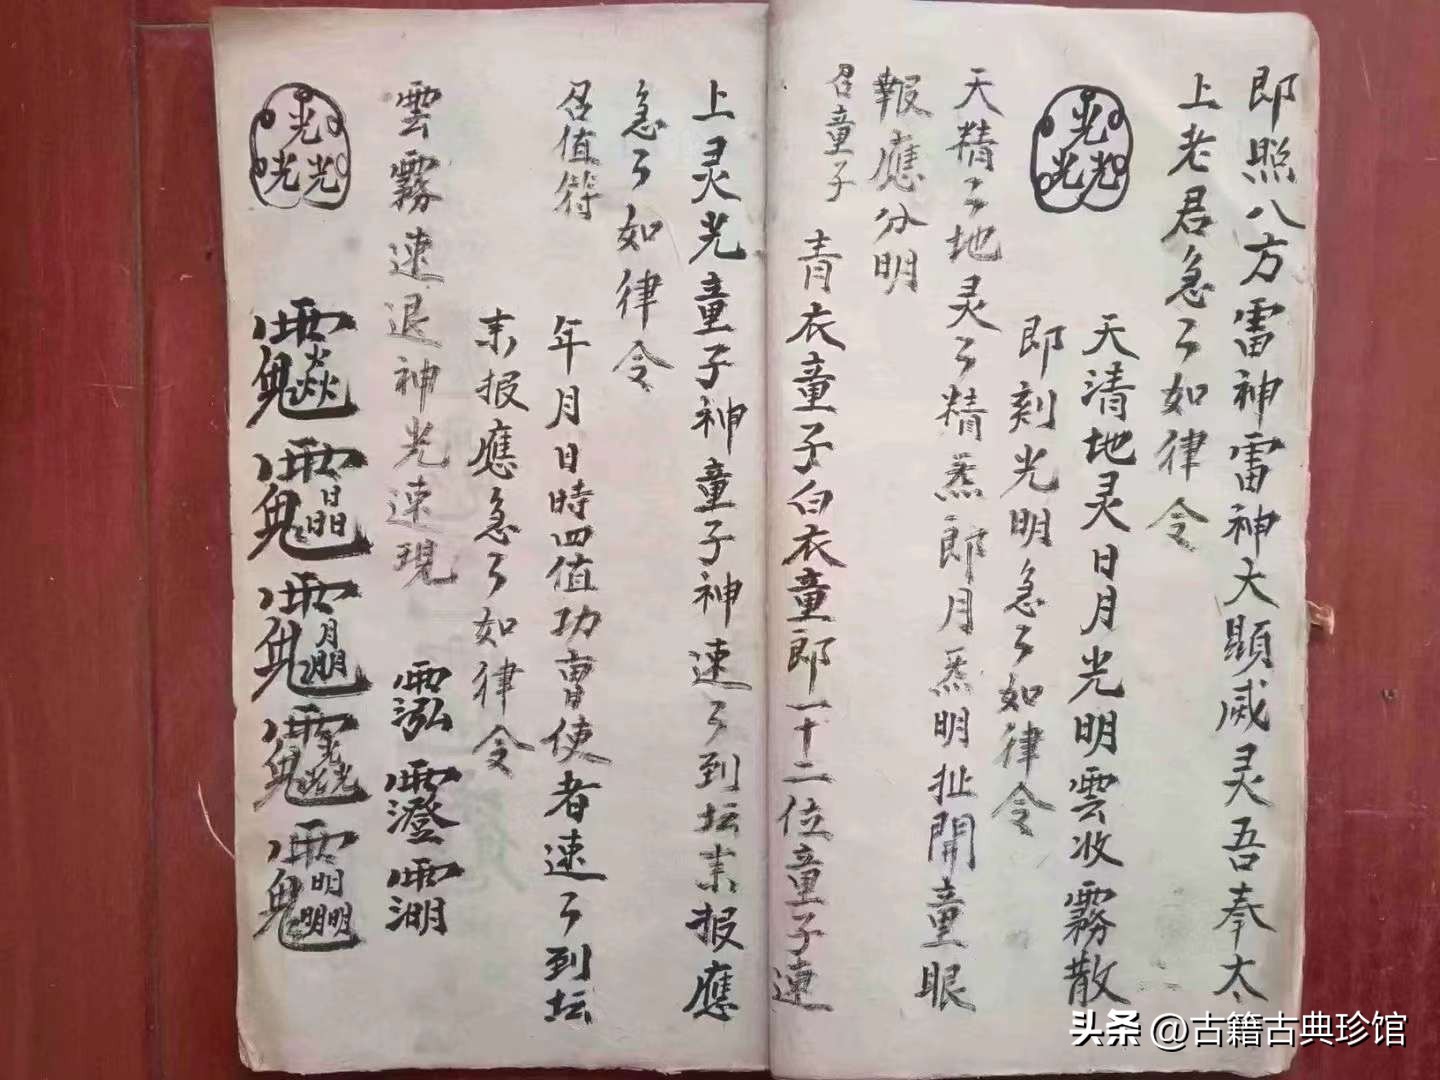 即照八方雷神雷神大顯威灵吾奉太
上老君急々如律令
光光光
天清地灵日月光明雲收霧散
即刻光明急々如律令
天精々地灵々精炁郎月炁明扯開童眼
報應分明
召童子
青衣童子白衣童郎一十二位童子連
上灵光童子神童子神速々到坛耒报應
急々如律令
召值符
年月日時四值功曹使者速々到坛
耒报應急々如律令
雲霧速退神光速現
光光光
头条 @古籍古典珍馆